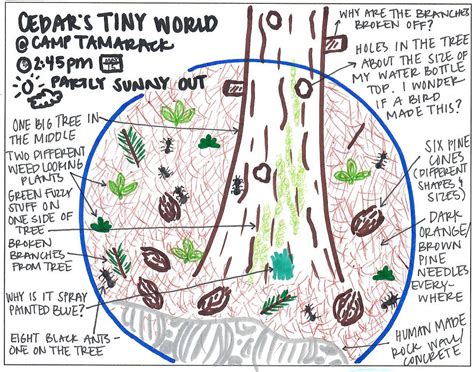 CEDAR'S TINY WORLD
@ CAMP TAMARACK
2:45pm
PARTLY SUNNY OUT
WHY ARE THE BRANCHES
BROKEN OFF?
HOLES IN THE TREE
ABOUT THE SIZE OF
MY WATER BOTTLE
TOP. I WONDER
IF A BIRD
MADE THIS?
ONE BIG TREE IN
THE MIDDLE
TWO DIFFERENT
WEED LOOKING
PLANTS
GREEN FUZZY
STUFF ON
ONE SIDE OF
TREE
BROKEN
BRANCHES-
FROM TREE
WHY IS IT SPRAY
PAINTED BLUE?
EIGHT BLACK ANTS-
ONE ON THE TREE
SIX PINE
CONES
(DIFFERENT
SHAPES &
SIZES)
DARK
ORANGE/
BROWN
PINE
NEEDLES
EVERY-
WHERE
HUMAN MADE
ROCK WALL/
CONCRETE